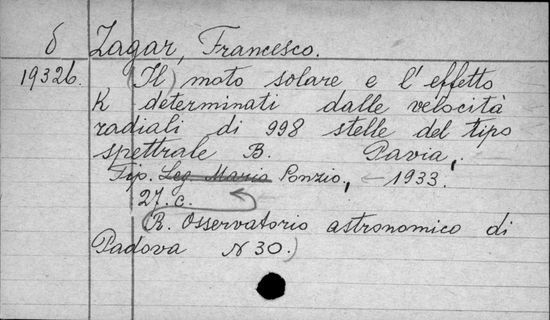 δ Zagar, Francesco.
1932b. (Il) moto solare e l'effetto
K determinati dalle velocità
radiali di 998 stelle del tipo
spettrale B. Pavia,
Tip. Leg Mario Ponzio, 1933.
27. c.
(R. Osservatorio astronomico di
Padova N 30.)